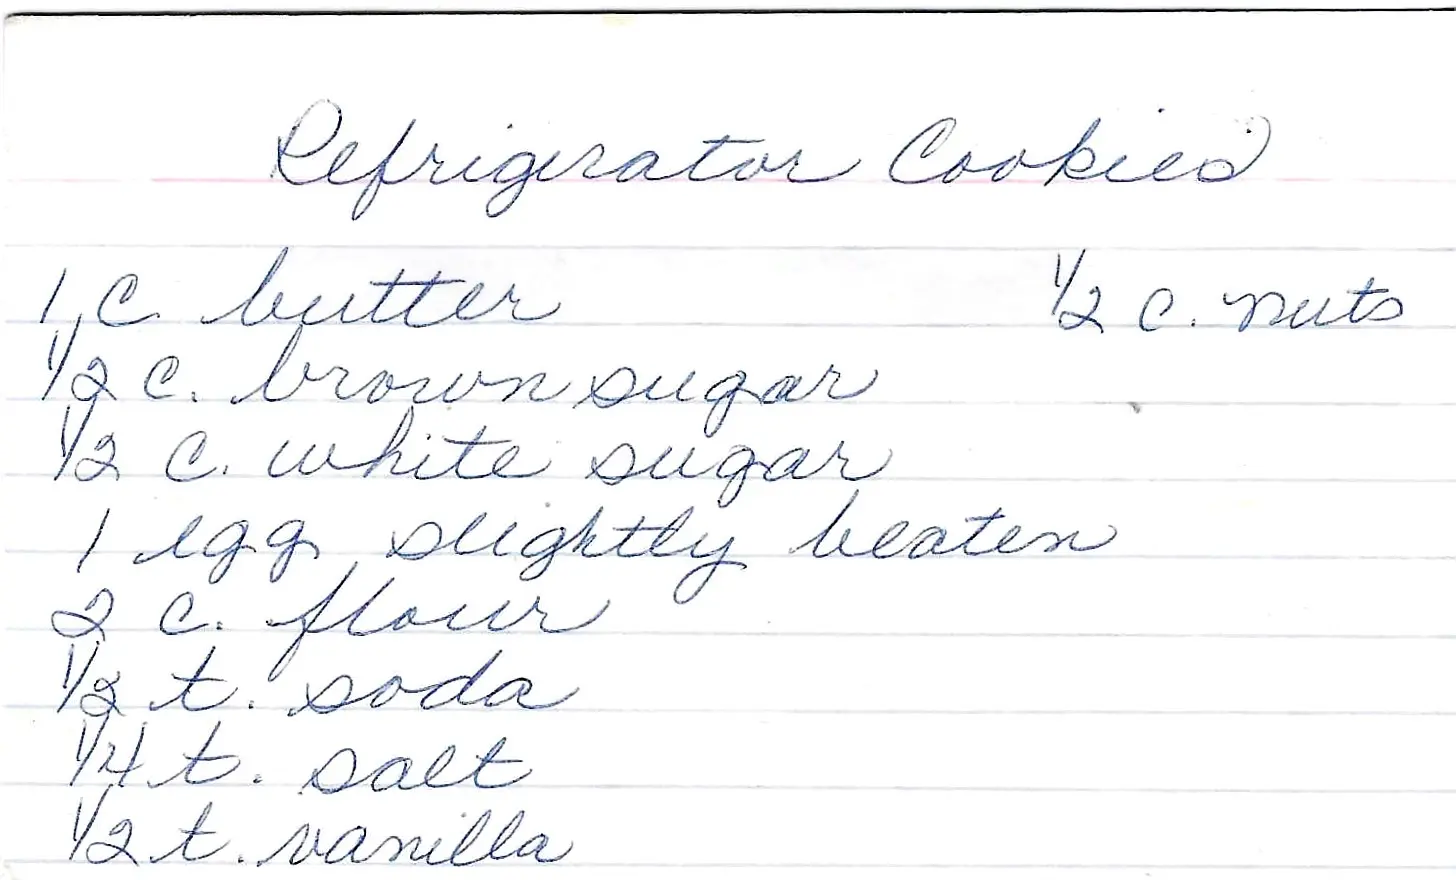 Refrigerator Cookies
1 c. butter 1/2 c. nuts
1/2 c. brown sugar
1/2 c. white sugar
1 egg slightly beaten
2 c. flour
1/2 t. soda
1/4 t. salt
1/2 t. vanilla